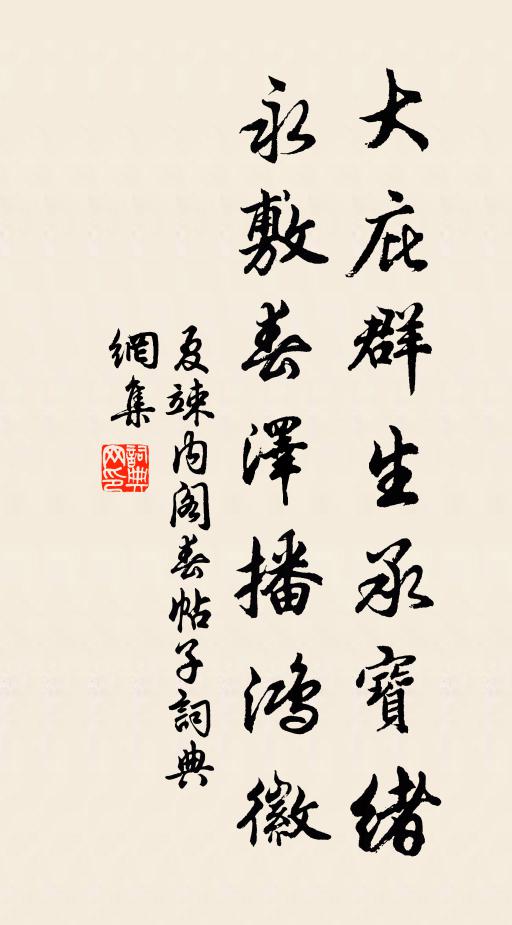 大庇群生承寶緒
永敷春澤播鴻徽
夏竦內閣春帖子詞典
網集
詞典
网印